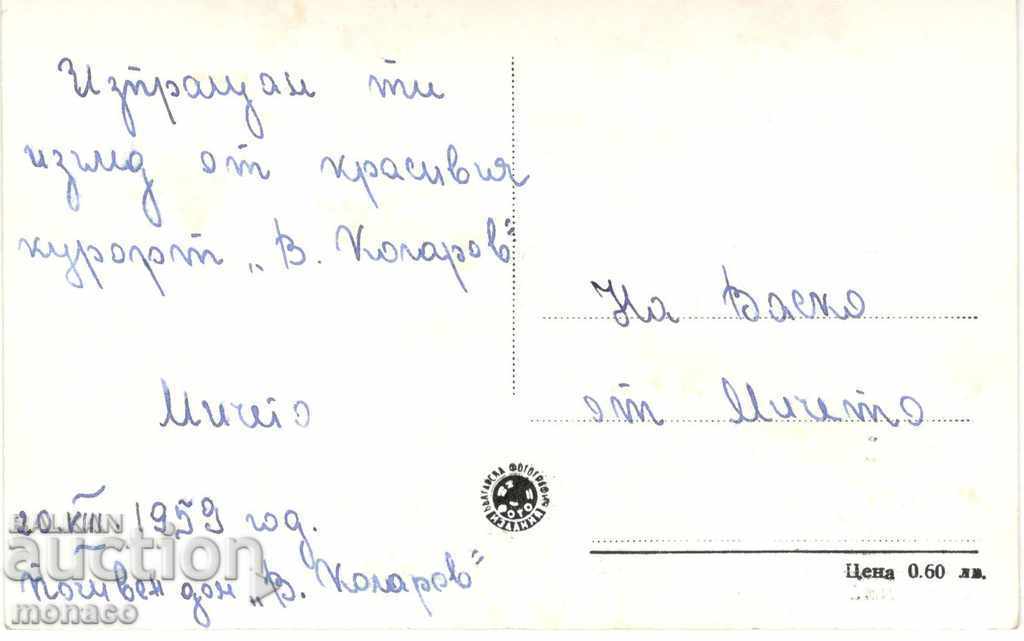 Изпращам ти
изглед от красивия
курорт „В. Коларов"
Мичето
20.VIII 1959 год.
Почивен дом „В. Коларов"
На Васко
от Мичето
БЪЛГАРСКА ФОТОГРАФИЯ
ИЗДАНИЕ
Цена 0.60 лв.
BALKAN
auction
monaco